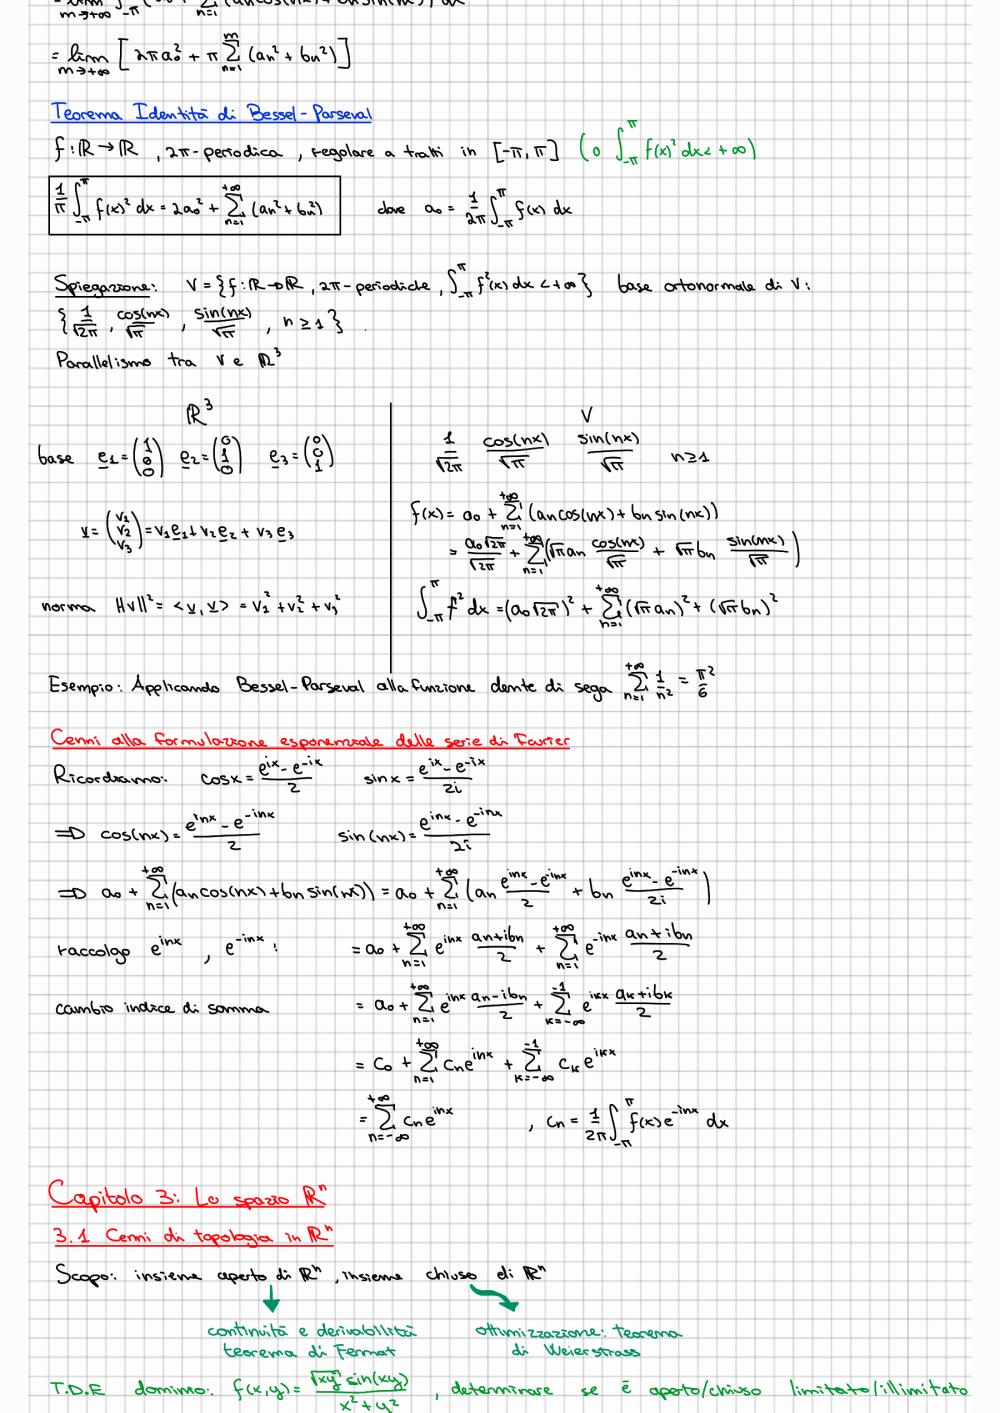 = lim_{m→+∞} [2πa₀² + π Σ_{n=1}^{m} (an² + bn²)]
Teorema Identità di Bessel-Parseval
f: ℝ → ℝ , 2π-periodica , regolare a tratti in [-π, π] (o ∫_{-π}^{π} f(x)² dx < +∞)
1/π ∫_{-π}^{π} f(x)² dx = 2a₀² + Σ_{n=1}^{+∞} (an² + bn²) dove a₀ = 1/2π ∫_{-π}^{π} f(x) dx
Spiegazione: V = {f: ℝ → ℝ , 2π-periodiche , ∫_{-π}^{π} f²(x) dx < +∞} base ortonormale di V:
{1/√2π , cos(nx)/√π , sin(nx)/√π , n ≥ 1} .
Parallelismo tra V e ℝ³
ℝ³ V
base e1 = (1 0 0) e2 = (0 1 0) e3 = (0 0 1) 1/√2π cos(nx)/√π sin(nx)/√π n≥1
f(x) = a₀ + Σ_{n=1}^{+∞} (an cos(nx) + bn sin(nx))
v = (v1 v2 v3) = v1 e1 + v2 e2 + v3 e3 = a₀√2π/√2π + Σ_{n=1}^{+∞} (√π an cos(nx)/√π + √π bn sin(nx)/√π)
norma ||v||² = <v, v> = v1² + v2² + v3² ∫_{-π}^{π} f² dx = (a₀√2π)² + Σ_{n=1}^{+∞} (√π an)² + (√π bn)²
Esempio: Applicando Bessel-Parseval alla funzione dente di sega Σ_{n=1}^{+∞} 1/n² = π²/6
Cenni alla formulazione esponenziale delle serie di Fourier
Ricordiamo: cosx = (e^{ix} - e^{-ix})/2 sinx = (e^{ix} - e^{-ix})/2i
⇒ cos(nx) = (e^{inx} - e^{-inx})/2 sin(nx) = (e^{inx} - e^{-inx})/2i
⇒ a₀ + Σ_{n=1}^{+∞} (an cos(nx) + bn sin(nx)) = a₀ + Σ_{n=1}^{+∞} (an (e^{inx} - e^{-inx})/2 + bn (e^{inx} - e^{-inx})/2i)
raccolgo e^{inx} , e^{-inx} : = a₀ + Σ_{n=1}^{+∞} e^{inx} (an + ibn)/2 + Σ_{n=1}^{+∞} e^{-inx} (an + ibn)/2
cambio indice di somma = a₀ + Σ_{n=1}^{+∞} e^{inx} (an - ibn)/2 + Σ_{k=-∞}^{-1} e^{ikx} (ak + ibk)/2
= C₀ + Σ_{n=1}^{+∞} Cn e^{inx} + Σ_{k=-∞}^{-1} Ck e^{ikx}
= Σ_{n=-∞}^{+∞} Cn e^{inx} , Cn = 1/2π ∫_{-π}^{π} f(x) e^{-inx} dx
Capitolo 3: Lo spazio ℝⁿ
3.1 Cenni di topologia in ℝⁿ
Scopo: insieme aperto di ℝⁿ , insieme chiuso di ℝⁿ
continuità e derivabilità ottimizzazione: teorema
teorema di Fermat di Weierstrass
T.D.E dominio: f(x,y) = √xy sin(xy)/(x² + y²) , determinare se è aperto/chiuso limitato/illimitato